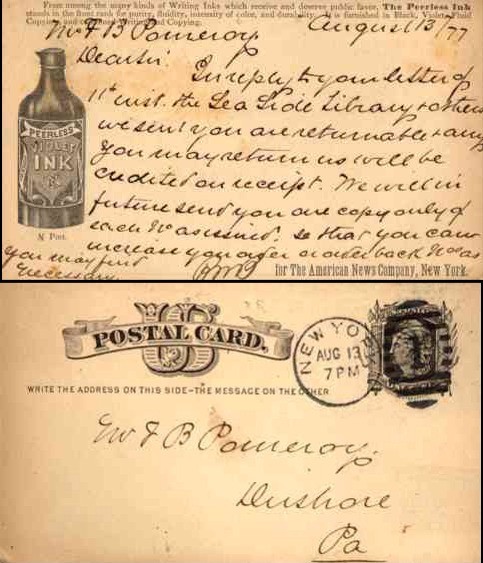 From among the many kinds of Writing Inks which receive and deserve public favor, The Peerless Ink
stands in the front rank for purity, fluidity, intensity of color, and durability. It is furnished in Black, Violet, Fluid
Copying, and Writing and Copying.
Mr F B Pomeroy August 13/77
Dear Sir.
In reply to your letter of
11th inst. the Sea Side Library & others
we sent you are returnable & any
you may return us will be
credited on receipt. We will in
future send you one copy only of
each No as issued, so that you can
increase your order or order back Nos as
you may find
necessary.
PEERLESS
VIOLET
INK
½ Pint.
for The American News Company, New York.
US
POSTAL CARD.
WRITE THE ADDRESS ON THIS SIDE-THE MESSAGE ON THE OTHER
NEW YORK
AUG 13
7 PM
Mr F B Pomeroy
Dushore
Pa